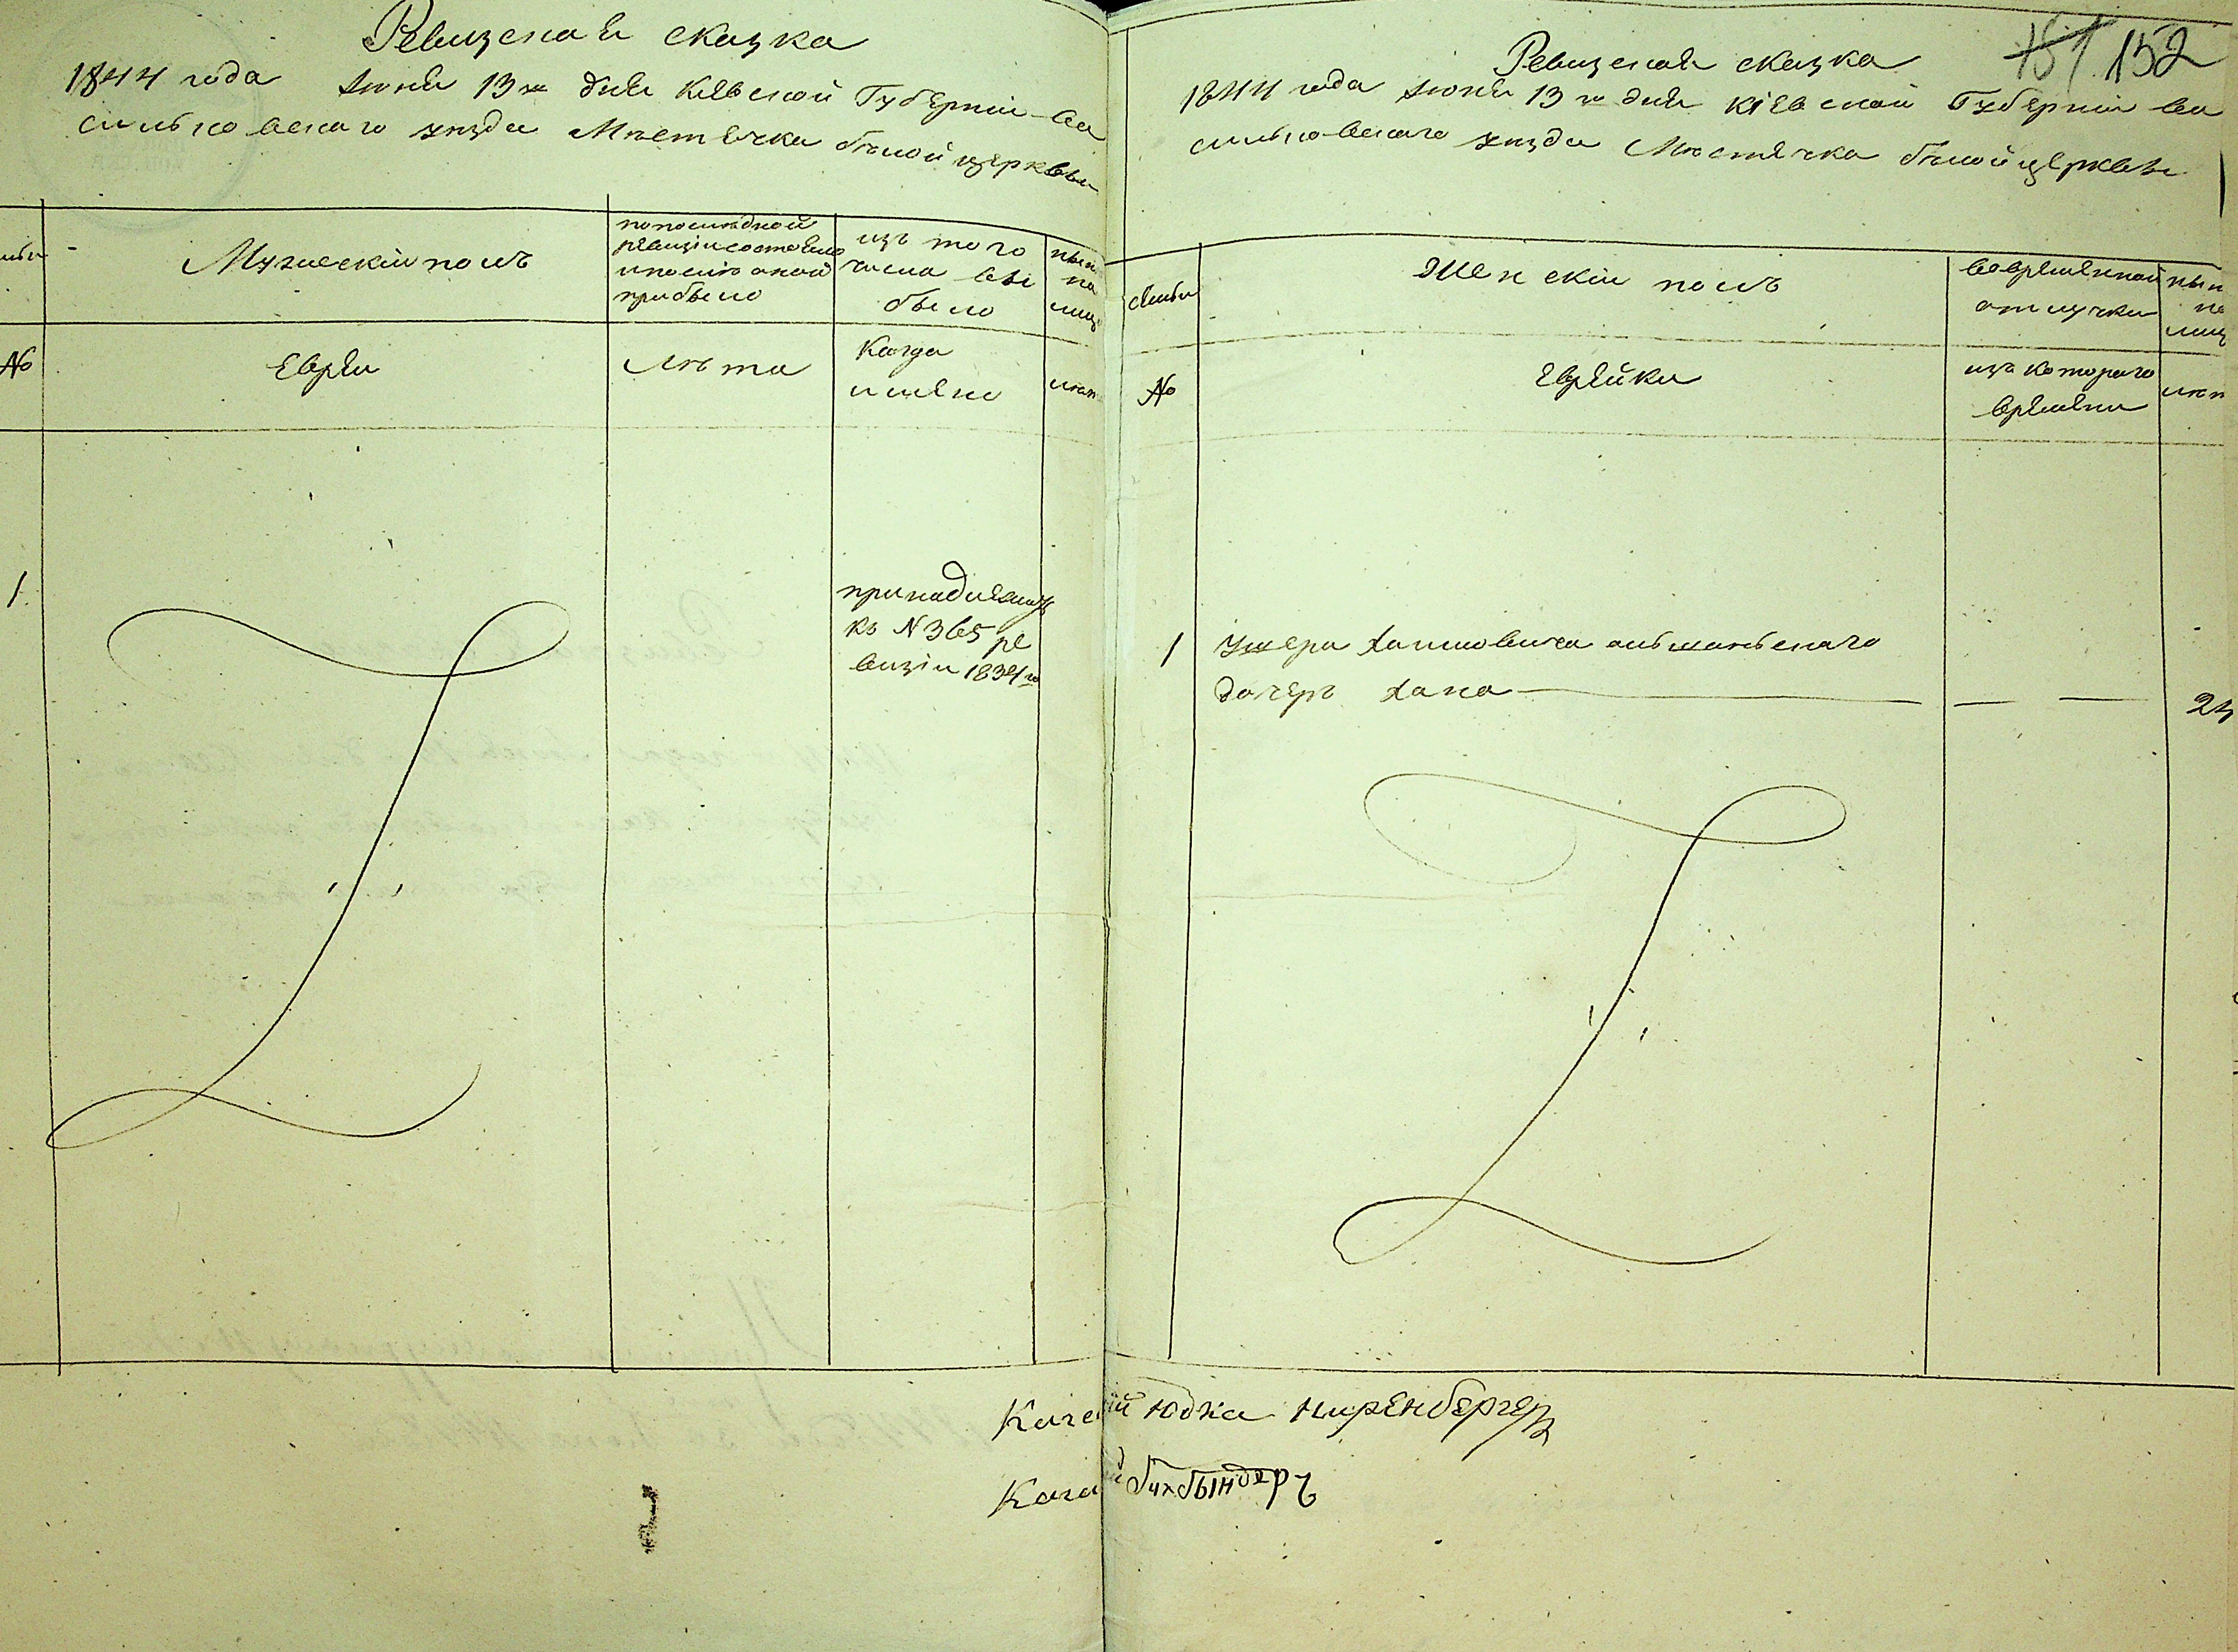 Ревизская сказка
1844 года Июня 13 го дня Киевской Губернии Ва
сильковскаго уезда Местечка белой церкви
Мужеский полъ
по последной
ревизии состояло
и после оной
прибыло
изъ того
числа вы
было
ныне
на
лицо
№
Евреи
Лета
Когда
имяно
1
принадлежитъ
къ N 365 ре
визии 1834 го
151 152
Ревизская сказка
1844 года Июня 13 го дня Кіевской Губерніи Ва
сильковскаго уезда Местечка белой церкви
семьи
Женскій полъ
во временной
отлучки
№
Еврейки
изъ котораго
времени
1
Ушера Хаимовича ольшанскаго
дочерь Хана
24
Кага ій Юдка Ниренбергеръ
Кага й бухбындеръ